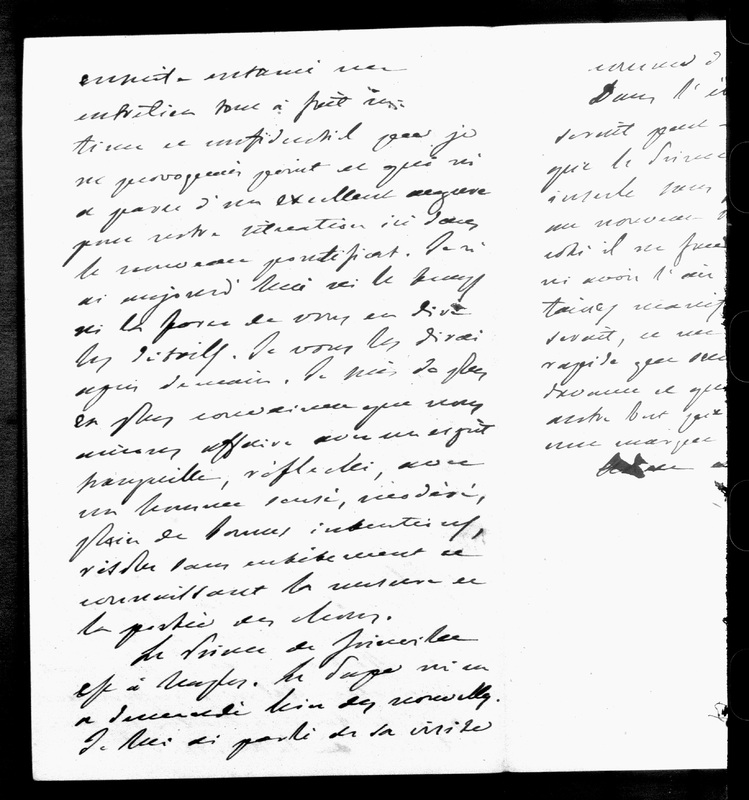 ensuite entamé un
entretien tout à fait in-
time et confidentiel que je
ne provoquais point et qui m'
a paru d'un excellent augure
pour notre situation ici dans
le nouveau pontificat. Je n'
ai aujourd'hui ni le temps
ni la force de vous en dire
les détails. Je vous les dirai
après demain. Je suis de plus
en plus convaincu que nous
aurons affaire avec un esprit
tranquille, réfléchi, avec
un homme sensé, modéré,
plein de bonnes intentions,
résolu sans entêtement et
connaissant la mesure et
la portée des choses.
Le Prince de Joinville
est à Naples. Le Pape m'en
a demandé hier des nouvelles.
Je lui ai parlé de sa visite
Dans l'
serait peut
que le Prince
sans
un nouveau
ni avoir l'air
serait, ce me
rapide que
et que
une marque